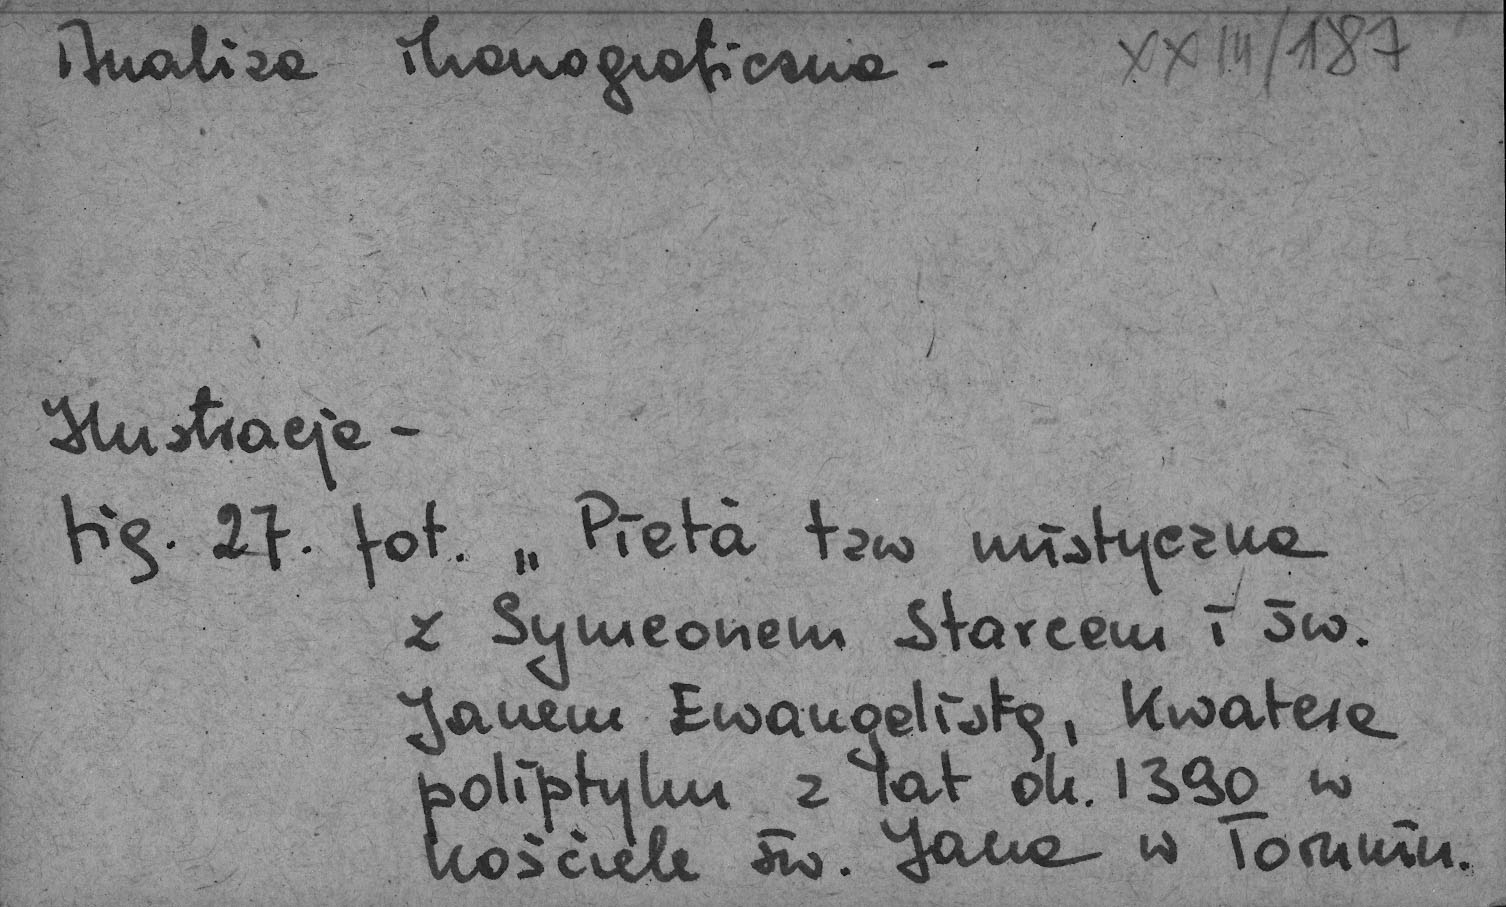 Analiza ikonograficzna - XXIII/187
Ilustracje -
fig. 27. fot. „Pietà tzw mistyczna
z Symeonem Starcem i św.
Janem Ewangelistą, Kwatera
poliptyku z lat ok. 1390 w
kościele św. Jana w Toruniu.